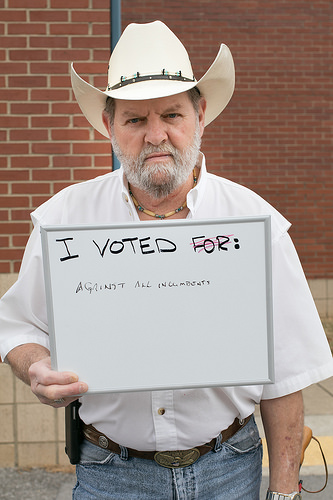 I VOTED FOR:
AGAINST ALL INCUMBENTS